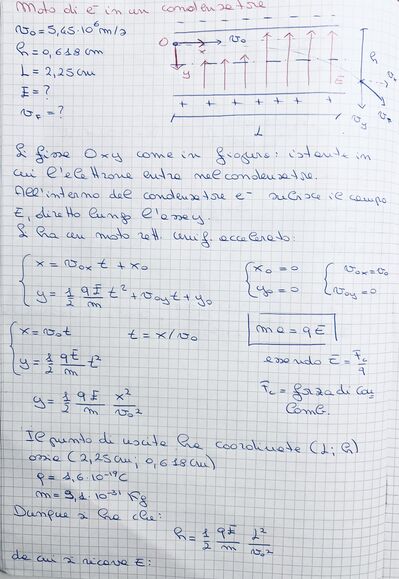 Moto di e⁻ in un condensatore
v₀ = 5,45·10⁶ m/s
h = 0,618 cm
L = 2,25 cm
E = ?
v_F = ?
- - - - - - -
O x v₀
y
E
h
+ + + + + + +
L
v_x
v_y
v_F
Si fissa Oxy come in figura: istante in
cui l'elettrone entra nel condensatore.
All'interno del condensatore e⁻ subisce il campo
E, diretto lungo l'asse y.
Si ha un moto rett. unif. accelerato.
x = v₀ₓ t + x₀
y = 1/2 qE/m t² + v₀y t + y₀
x₀ = 0
y₀ = 0
v₀ₓ = v₀
v₀y = 0
x = v₀ t t = x/v₀
y = 1/2 qE/m t²
ma = qE
essendo E = F_c/q
y = 1/2 qE/m x²/v₀²
F_c = forza di Cou
lomb.
Il punto di uscita ha coordinate (L; h)
ossia (2,25 cm; 0,618 cm)
q = 1,6·10⁻¹⁹ C
m = 9,1·10⁻³¹ Kg
Dunque si ha che:
h = 1/2 qE/m L²/v₀²
da cui si ricava E: